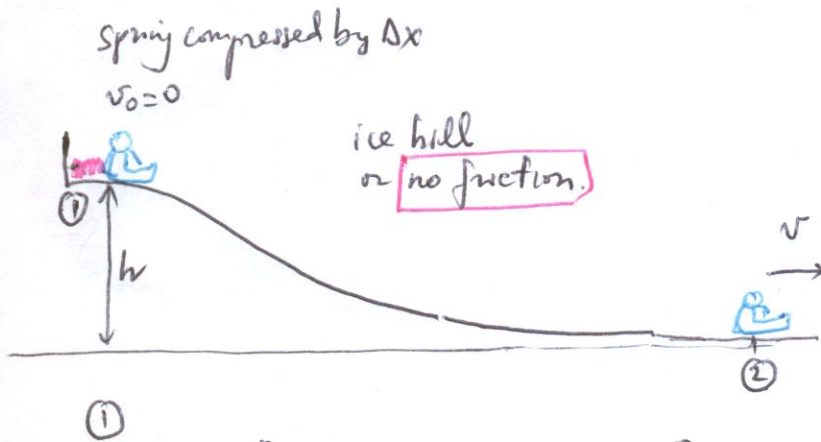 spring compressed by Δx
v₀=0
ice hill
or no friction.
①
h
v
②
①